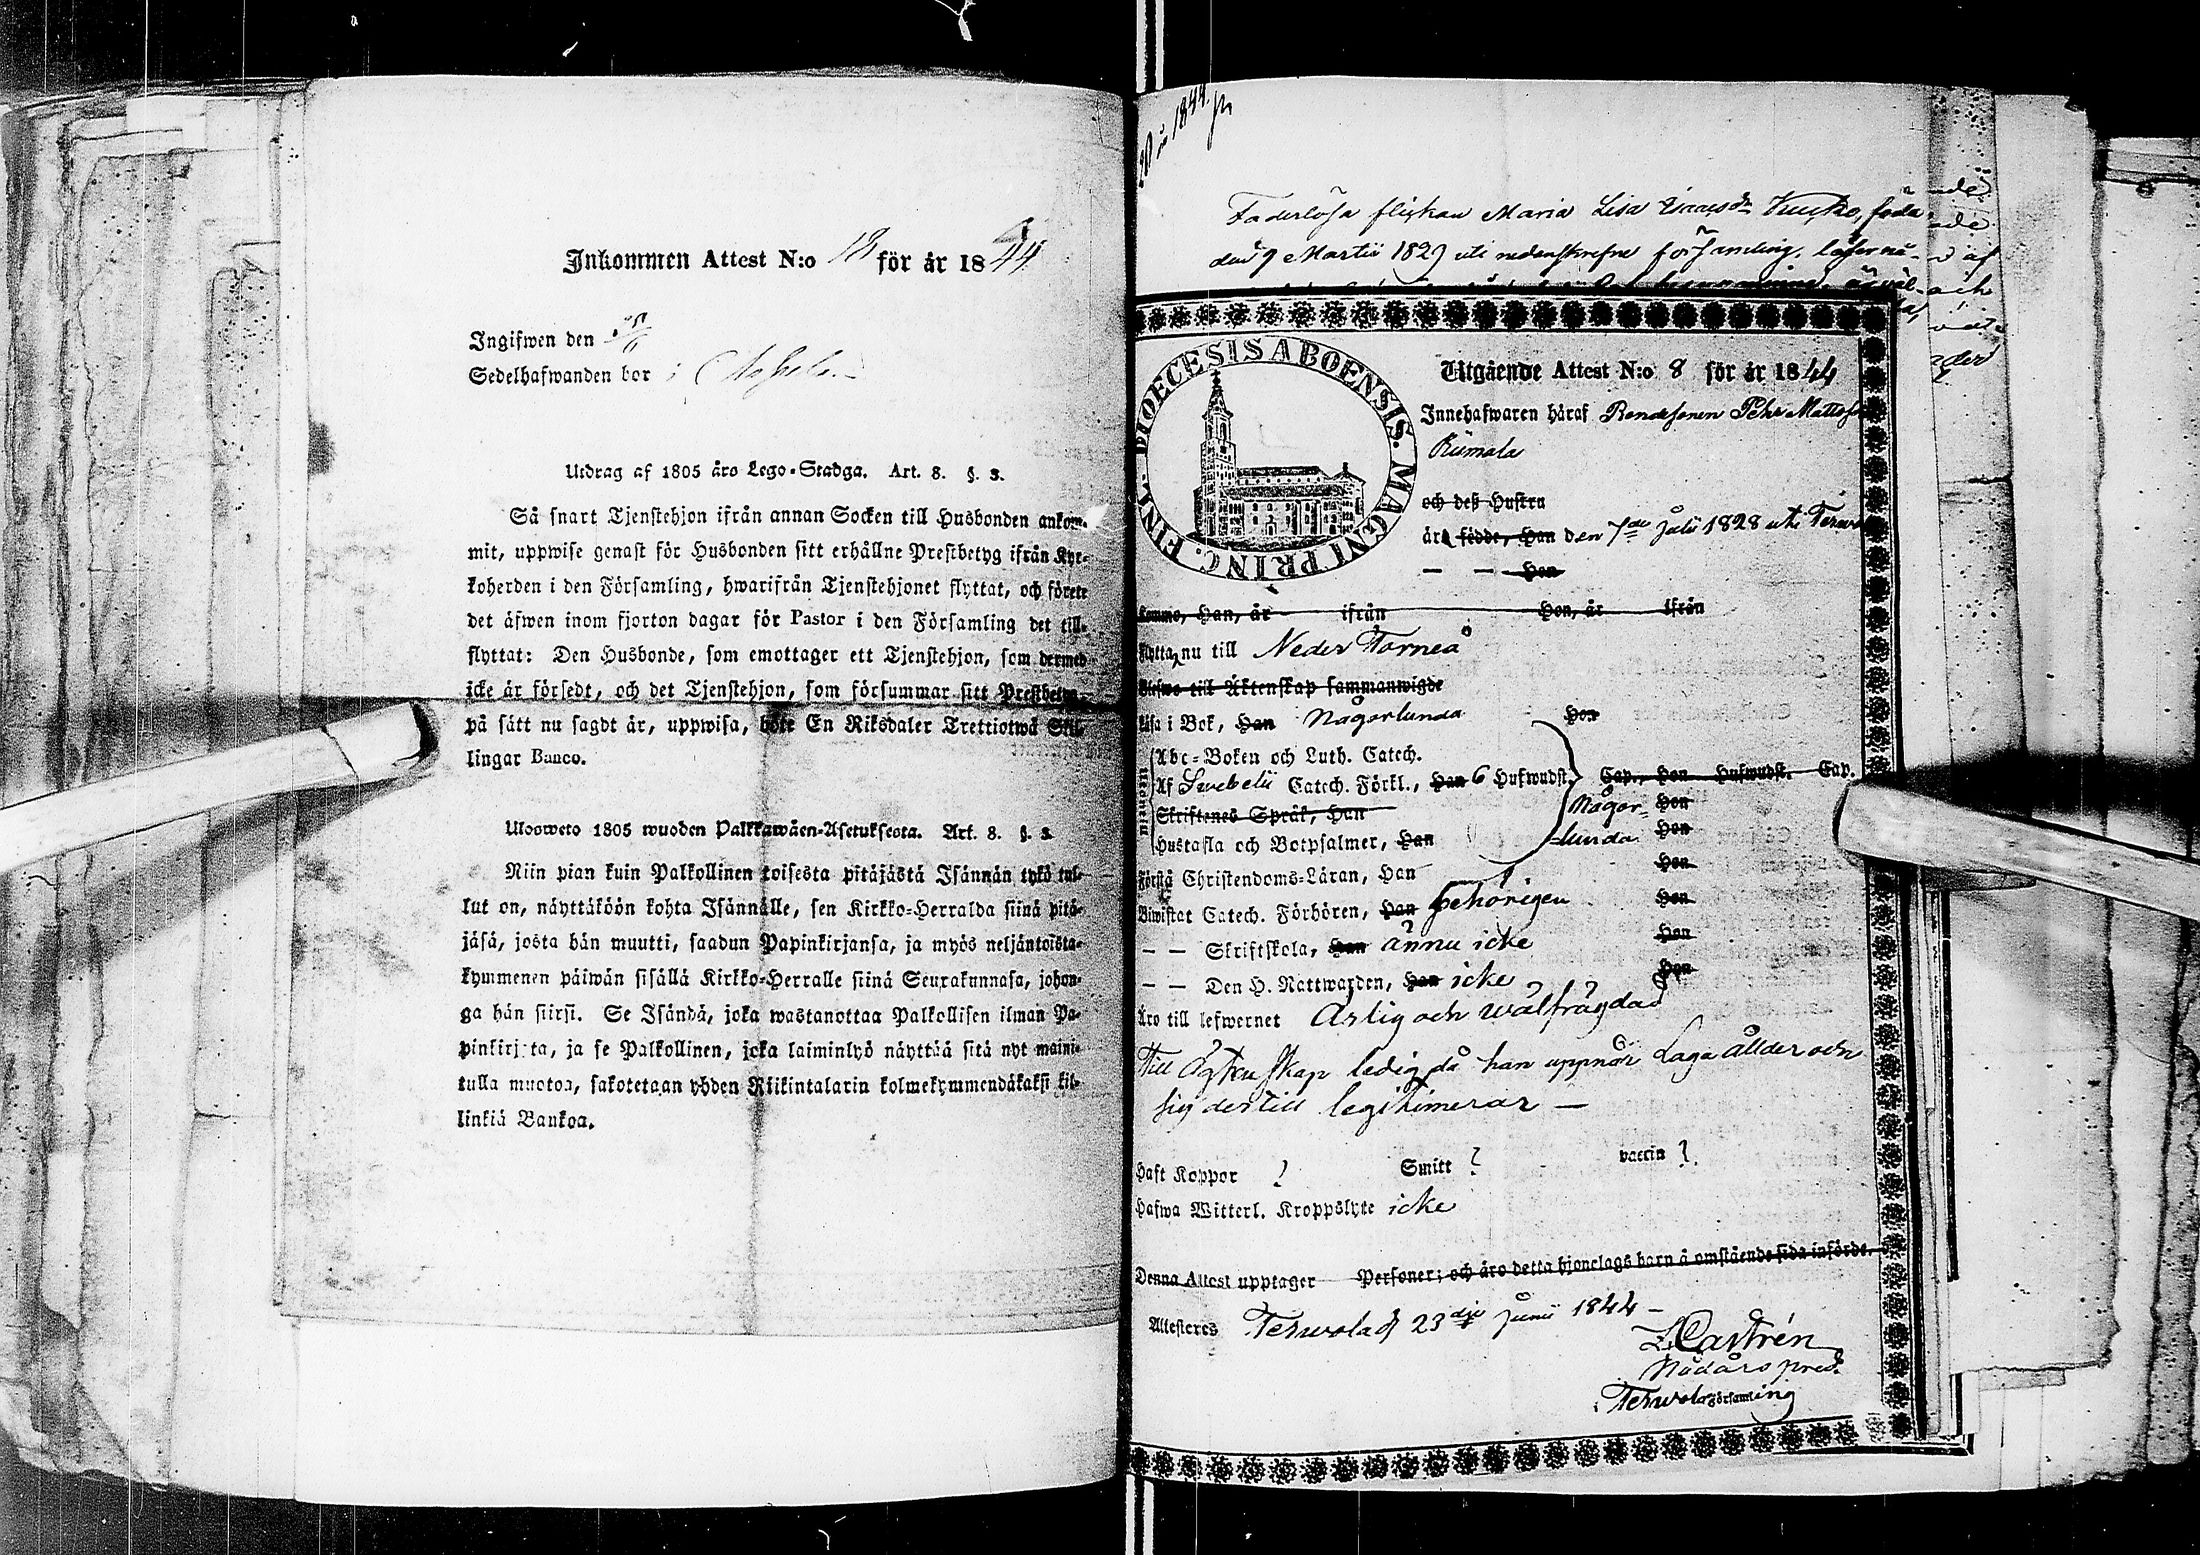 Inkommen Attest N:o 18 för år 1844
Ingifwen den
Sedelhafwanden bor i
Utdrag af 1805 åro Lego-Stadga. Art. 8. §. 3.
Så snart Tjenstehjon ifrån annan Socken till Husbonden ankom-
mit, uppwise genast för Husbonden sitt erhållne Prestbetyg ifrån Kyr-
koherden i den Församling, hwarifrån Tjenstehjonet flyttat, och förete
det äfwen inom fjorton dagar för Pastor i den Församling det till-
flyttat: Den Husbonde, som emottager ett Tjenstehjon, som dermed
icke är försedt, och det Tjenstehjon, som försummar sitt Prestbetyg,
på sätt nu sagdt är, uppwisa, böte En Riksdaler Trettiotwå Skil-
lingar Banco.
Ulosweto 1805 wuoden Palkkawäen-Asetuksesta. Art. 8. §. 3.
Niin pian kuin Palkollinen toisesta pitäjästä Isännän tykö tul-
lut on, näyttäköön kohta Isännälle, sen Kirkko-Herralda siinä pitä-
jäsä, josta hän muutti, saadun Papinkirjansa, ja myös neljäntoista-
kymmenen päiwän sisällä Kirkko-Herralle siinä Seurakunnasa, johon-
ga hän siirsi. Se Isändä, joka wastanottaa Palkollisen ilman Pa-
pinkirjata, ja se Palkollinen, joka laiminlyö näyttää sitä nyt maini-
tulla muotoa, sakotetaan yhden Riikintalarin kolmekymmendäkaksi kil-
linkiä Bankoa.
1844
Faderlösa flickan Maria Lisa Isaacsdr Kuusko, föda
den 9 Martii 1829 uti nedanskrefne församling, läser nå-
DIOECESIS ABOENSIS. MAGNI PRINC. FINL.
Utgående Attest N:o 8 för år 1844
Innehafwaren häraf Bondesonen Pehr Mattsson
Rümala
och deß Hustru
äro födde, Han den 7de Julii 1828 uti Terwola
— — Hon
komne, Han, år ifrån Hon, år ifrån
flytta nu till Neder Torneå
Blefwo till Äktenskap sammanwigde
läsa i Bok, Han Någorlunda Hon
Utantill
Abc-Boken och Luth. Catech.
Af Swebelii Catech. Förkl., Han 6 Hufwudst. Cap., Hon Hufwudst. Cap.
Skriftenes Språk, Han Någor- Hon
Hustafla och Botpsalmer, Han lunda Hon
Förstå Christendoms-Läran, Han Hon
Biwistat Catech. Förhören, Han behörigen Hon
— — Skriftskola, Han ännu icke Hon
— — Den H. Nattwarden, Han icke Hon
Äro till lefwernet Ärlig och wälfrägdad
Till Ägtenskap ledig då han uppnår Laga ållder och
sig dertill legitimerar —
Haft Koppor ? Smitt ? vaccin ?
Hafwa Witterl. Kroppslyte icke
Denna Attest upptager Personer; och äro detta hjonelags barn å omstående sida införde.
Attesteres Terwola d 23dje Junii 1844 —
Z Castrén
Nådårs pred.
Terwola Församling